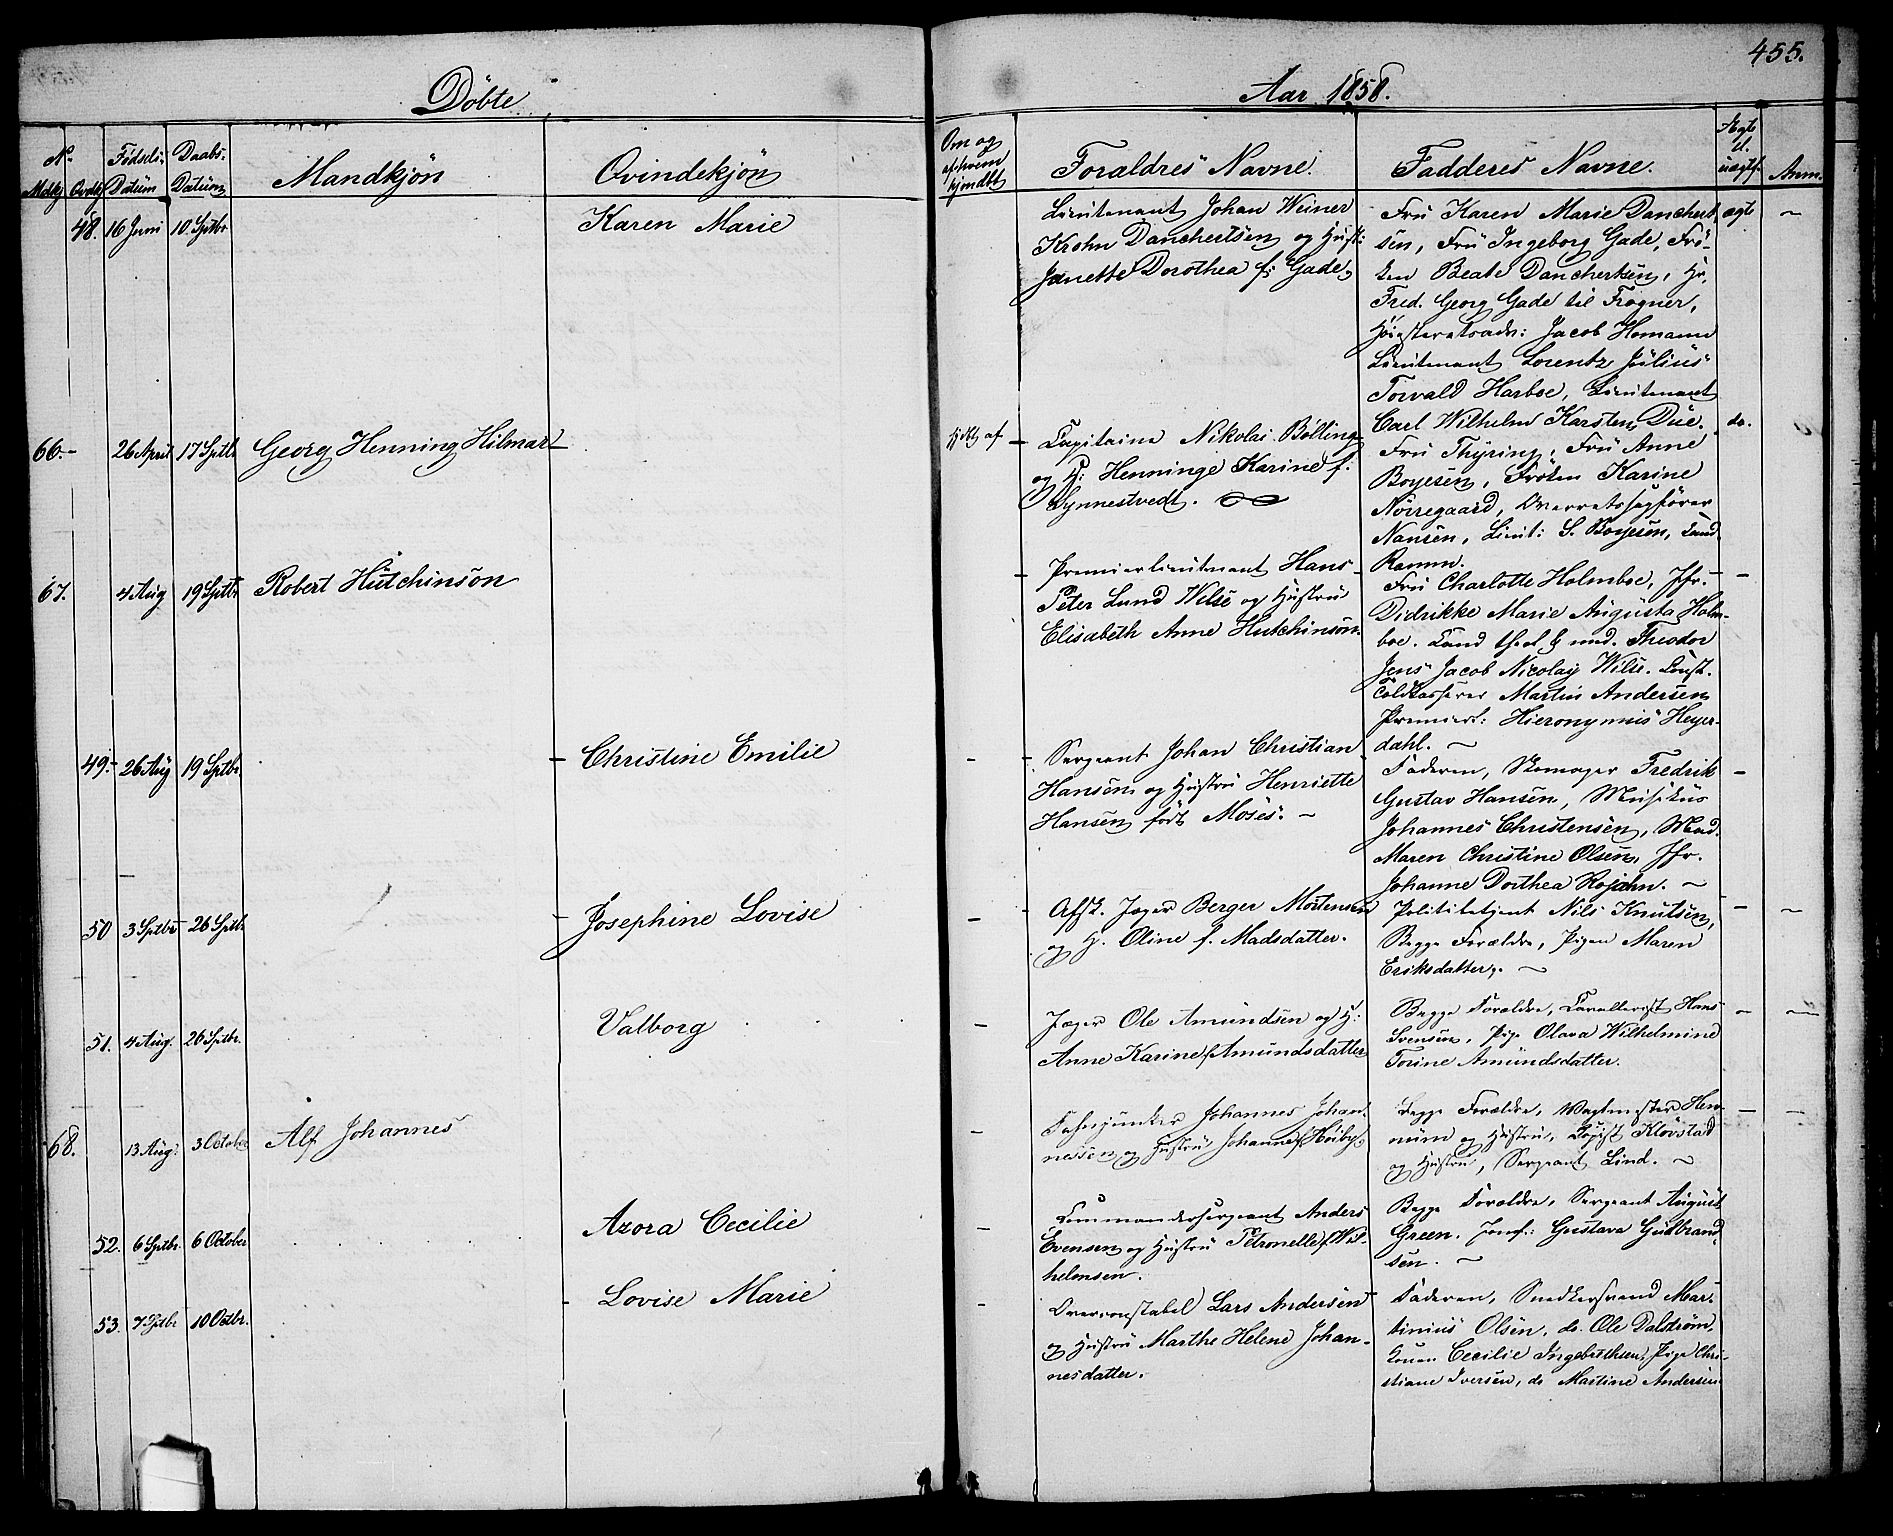 455.
Döbte
Aar 1858.
No
Mdkj Qvdkj
Fødsels
Datum
Daabs-
Datum
Mandkjön
Qvindekjön
Om og
af hvem
hjemdøbt
Foraldres Navne.
Fadderes Navne.
Ægte
el.
uægte
Anm.
48. 16 Juni 10. Sptbr
Karen Marie
Lieutenant Johan Weiner
Krohn Danchertsen og Hust:
Janette Dorothea f: Gade,
Fru Karen Marie Danchert
sen, Fru Ingeborg Gade, Frö-
ken Beate Danchertsen, Hr.
Fred. Georg Gade til Frogner,
Höiesteretsadv: Jacob Homann
Lieutenant Lorentz Julius
Torvald Harboe, Lieutenant
Carl Wilhelm Karsten Due.
ægte
~
66. 26 April 17 Sptbr Georg Henning Hilmar
Hjdbt af
Capitaine Nikolai Bölling
og H: Henninge Karine f.
Synnestvedt.
Fru Thyring, Fru Anne
Boyesen, Fröken Karine
Nörregaard, Overretssagförer
Nansen, Lieut: S. Boyesen, Cand
Ramm.
do.
67. 4 Aug 19 Sptbr Robert Hutchinson
Premierlieutnant Hans
Peter Lund Wilse og Hustru
Elisabeth Anne Hutchinson.
Fru Charlotte Holmboe, Jfr.
Didrikke Marie Augusta Holm-
boe. Cand. Theodor
Jens Jacob Nicolay Wilse. Const.
Toldkasserer Martin Andersen
Premierl: Hieronymus Heyer-
dahl. ~
-
49. 26 Aug 19 Sptbr.
Christine Emilie
-
Sergeant Johan Christian
Hansen og Hustru Henriette
Hansen född Moses. ~
Faderen, Skomager Fredrik
Gustav Hansen, Musikus
Johannes Christensen, Mad.
Maren Christine Olsen, Jfr.
Johanne Dorthea Rojahn. ~
-
50 3 Sptbr 26 Sptb.
Josephine Lovise
-
Afsk. Jæger Berger Mortensen
og H. Oline f. Madsdatter.
Politibetjent Nils Knutsen,
Begge Forældre, Pigen Maren
Eriksdatter. ~
- ~
51. 4 Aug. 26 Sptbr.
Valborg
-
Jæger Ole Amundsen og H:
Anne Karine f. Amundsdatter
Begge Forældre, Hans
Svensen, Pige Olava Wilhelmine
Torine Amundsdatter.
- -
68. 13 Aug. 3 October Alf Johannes
-
Fahnjunker Johannes Johan-
nessen og Hustru Johanne f. Höiby
Begge Forældre, Vagtmester Hen-
og Hustru, Klovstad
og Hustru, Sergeant Lind. ~
- -
52. 6 Sptbr. 6 October
Azora Cecilie
-
Commandersergeant Anders
Evensen og Hustru Petronelle f. Wil-
helmsen.
Begge Forældre, Sergeant August
Green. Jomf: Gustava Guldbrand
sen. ~
53. 7 Sptbr 10 Octbr.
Lovise Marie
-
Overconstabel Lars Andersen
og Hustru Marthe Helene Johan-
nesdatter.
Faderen, Snedkersvend Mar-
tinius Olsen, do. Ole Dalström,
Konen Cecilie Ingebrethsen, Pige Chri-
stiane Iversen, do Martine Andersen